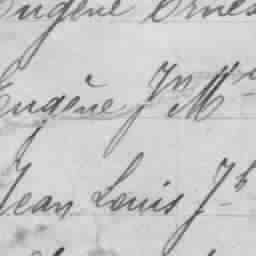 Eugène Ernes
Eugène Jn M
Jean Louis Jh